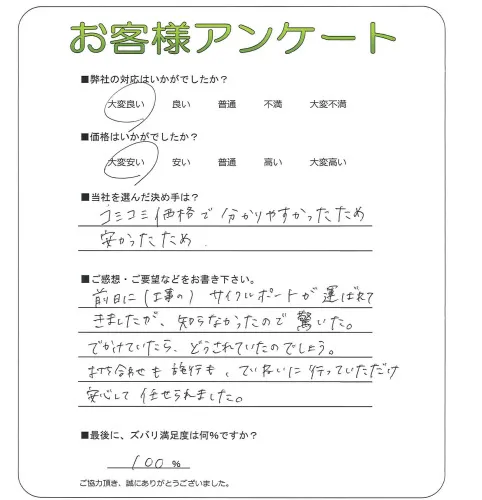 お客様アンケート
■弊社の対応はいかがでしたか？
大変良い 良い 普通 不満 大変不満
■価格はいかがでしたか？
大変安い 安い 普通 高い 大変高い
■当社を選んだ決め手は？
コミコミ価格で分かりやすかったため
安かったため
■ご感想・ご要望などをお書き下さい。
前日に(工事の)サイクルポートが運ばれて
きましたが、知らなかったので驚いた。
でかけていたら、どうされていたのでしょう。
打ち合わせも施行も、ていねいに行っていただけ
安心して任せられました。
■最後に、ズバリ満足度は何%ですか？
100 %
ご協力頂き、誠にありがとうございました。